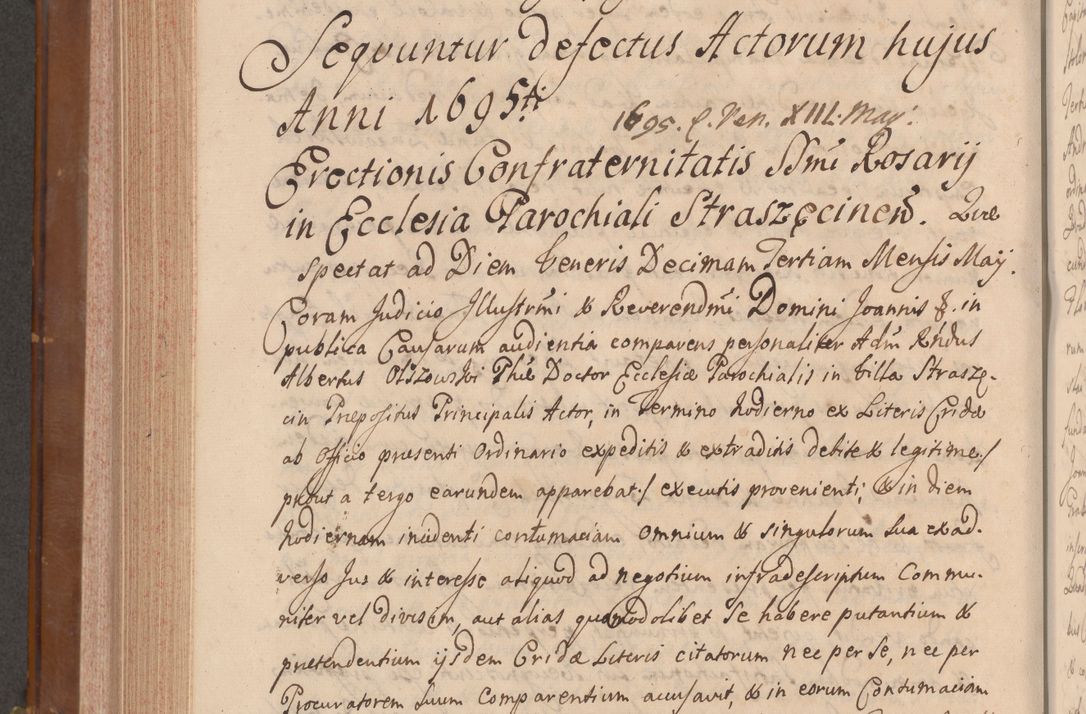 Sequuntur defectus Actorum hujus
Anni 1695ti
1695. f. Ven. XIII. May.
Erectionis Confraternitatis SSmi Rosarij
in Ecclesia Parochiali Straszęcinen. Quæ
spectat ad Diem Veneris Decimam Tertiam Mensis Maij.
Coram Judicio Illustrmi & Reverendmi Domini Joannis &. in
publica Causarum audientia comparens personaliter Adm Rndus
Albertus Olszowski Phiæ Doctor Ecclesiæ Parochialis in Villa Straszę-
cin Præpositus Principalis Actor, in Termino hodierno ex Literis Cridæ
ab Officio præsenti Ordinario expeditis & extraditis debite & legitime /
prout a tergo earundem apparebat / executis provenienti; & in diem
hodiernam incidenti contumaciam omnium & singulorum sua exad-
verso Jus & interesse aliquod ad negotium infradescriptum Commu-
niter vel divisim, aut alias quomodolibet se habere putantium &
prætendentium ijsdem Cridæ Literis citatorum nec per se, nec per
Procuratorem suum comparentium accusavit, & in eorum Contumaciam